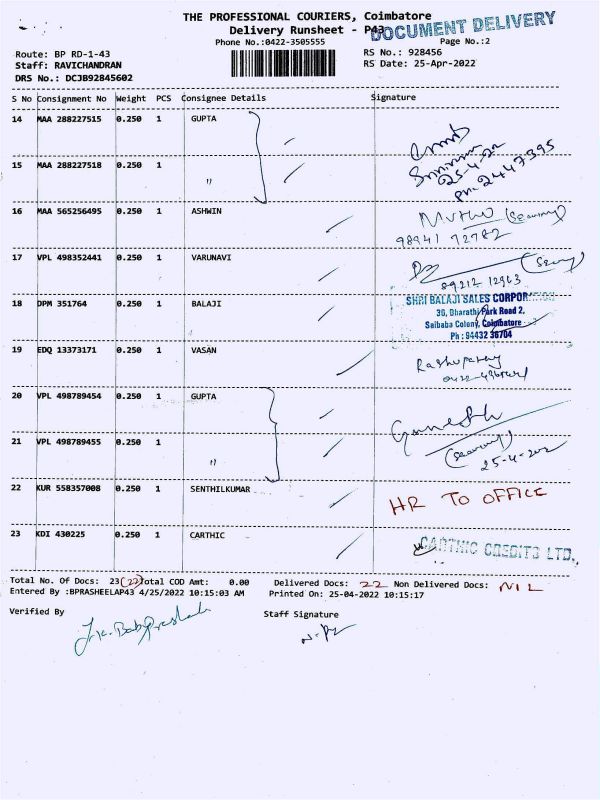 THE PROFESSIONAL COURIERS, Coimbatore
Delivery Runsheet - P43
DOCUMENT DELIVERY
Phone No.:0422-3505555
Page No.:2
Route: BP RD-1-43
RS No.: 928456
Staff: RAVICHANDRAN
RS Date: 25-Apr-2022
DRS No.: DCJB92845602
S No Consignment No Weight PCS Consignee Details Signature
14 MAA 288227515 0.250 1 GUPTA
25-4-22
15 MAA 288227518 0.250 1 "
Ph: 2447395
16 MAA 565256495 0.250 1 ASHWIN
98941 72782
17 VPL 498352441 0.250 1 VARUNAVI
89212 12963
18 DPM 351764 0.250 1 BALAJI
SHRI BALAJI SALES CORPORATION
30, Bharathi Park Road 2,
Saibaba Colony, Coimbatore
Ph : 94432 36704
19 EDQ 13373171 0.250 1 VASAN
20 VPL 498789454 0.250 1 GUPTA
Gunesh
21 VPL 498789455 0.250 1 "
25-4-202
22 KUR 558357008 0.250 1 SENTHILKUMAR
HR TO OFFICE
23 KDI 430225 0.250 1 CARTHIC
CARTHIC CREDITS LTD.,
Total No. Of Docs: 23 (22) Total COD Amt: 0.00 Delivered Docs: 22 Non Delivered Docs: NIL
Entered By :BPRASHEELAP43 4/25/2022 10:15:03 AM Printed On: 25-04-2022 10:15:17
Verified By
Staff Signature